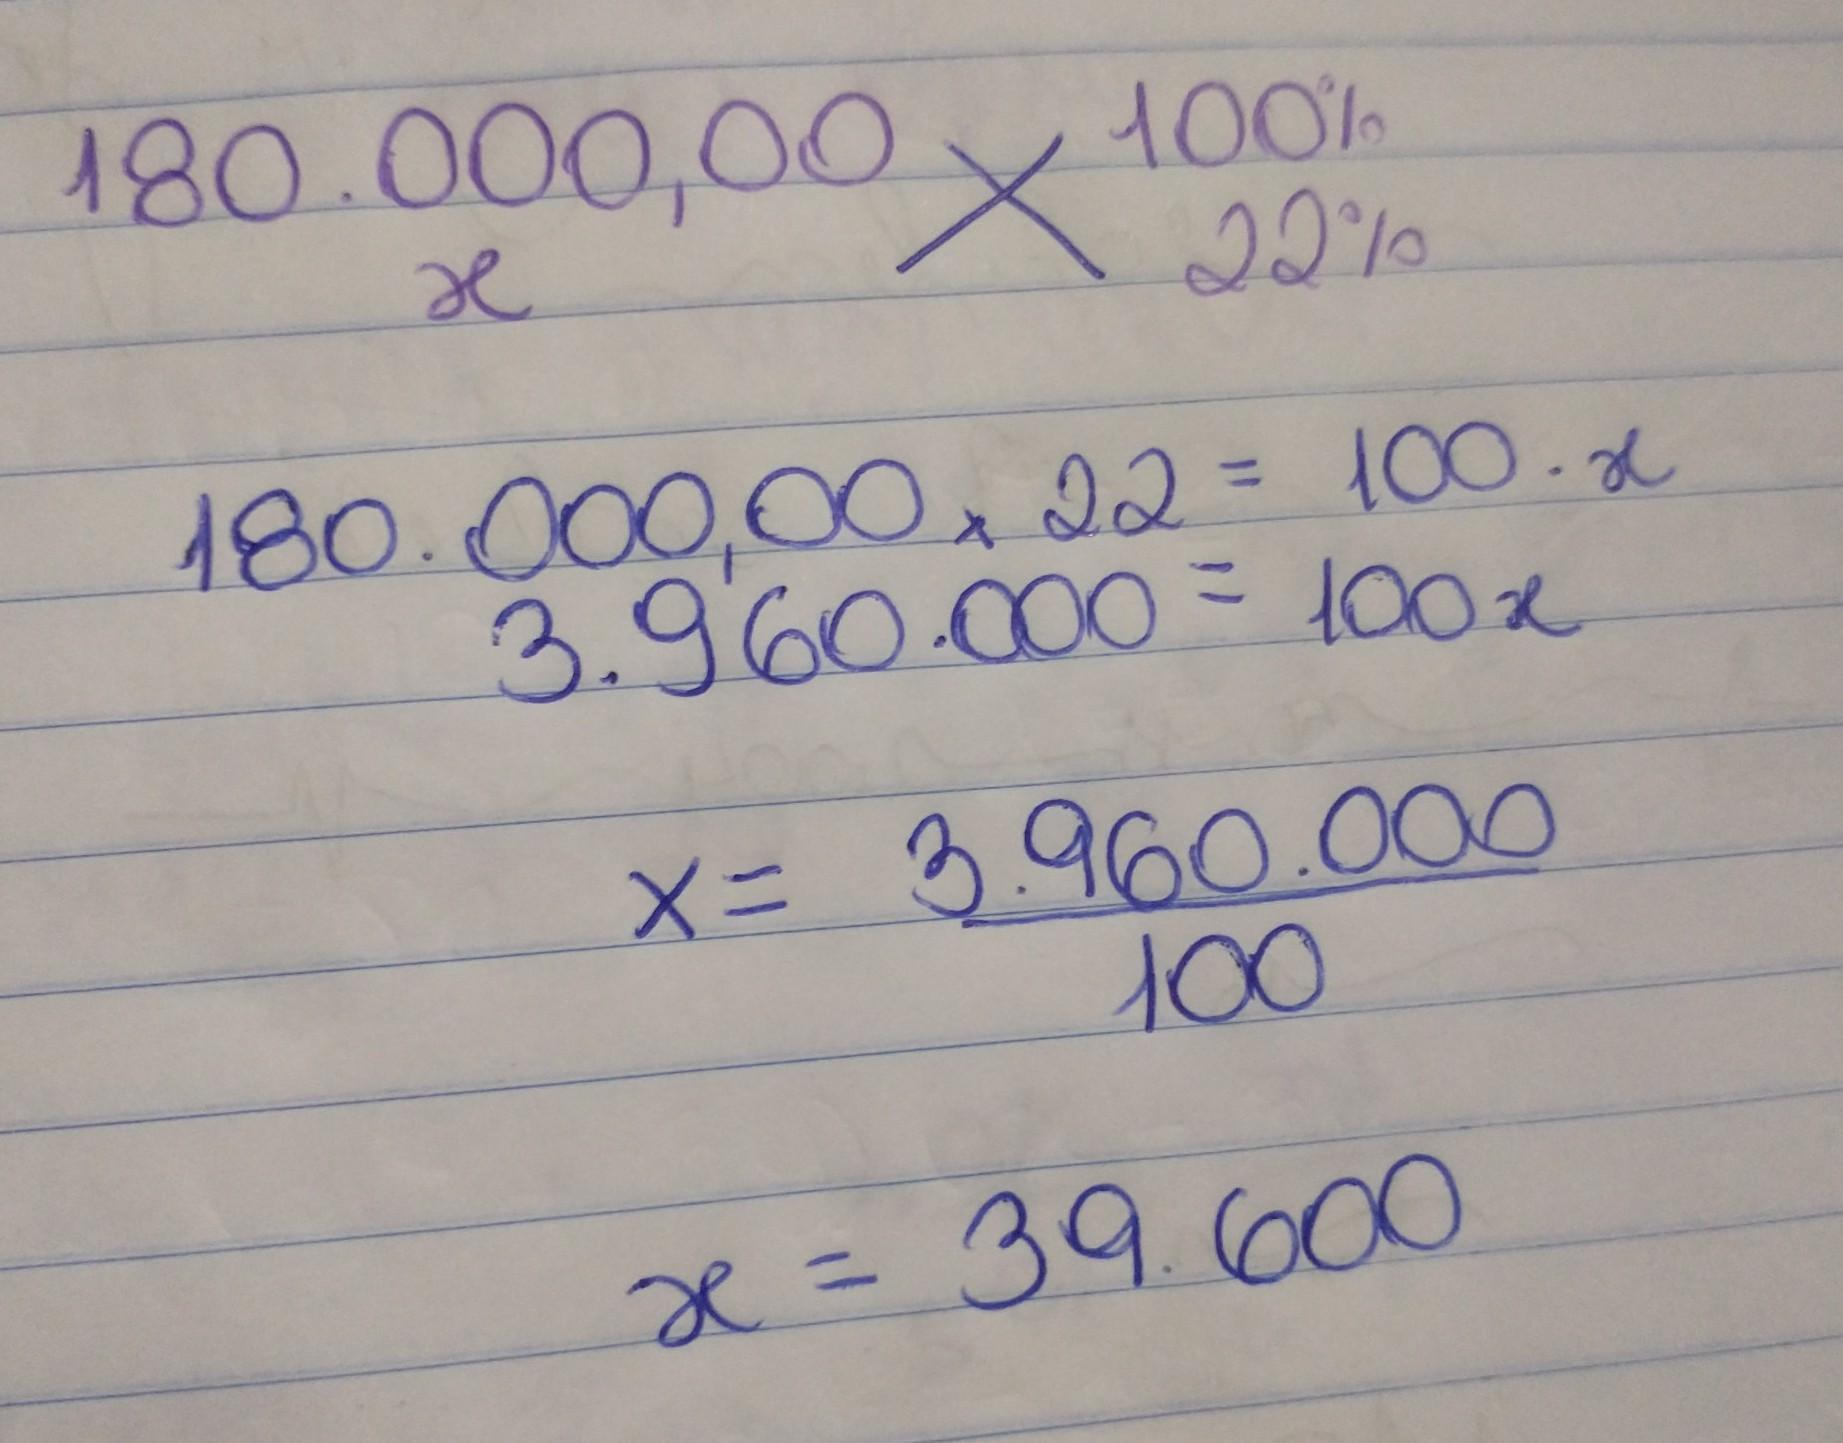 180.000,00 100%
x 22%
180.000,00 x 22 = 100 . x
3.960.000 = 100x
x = 3.960.000
100
x = 39.600